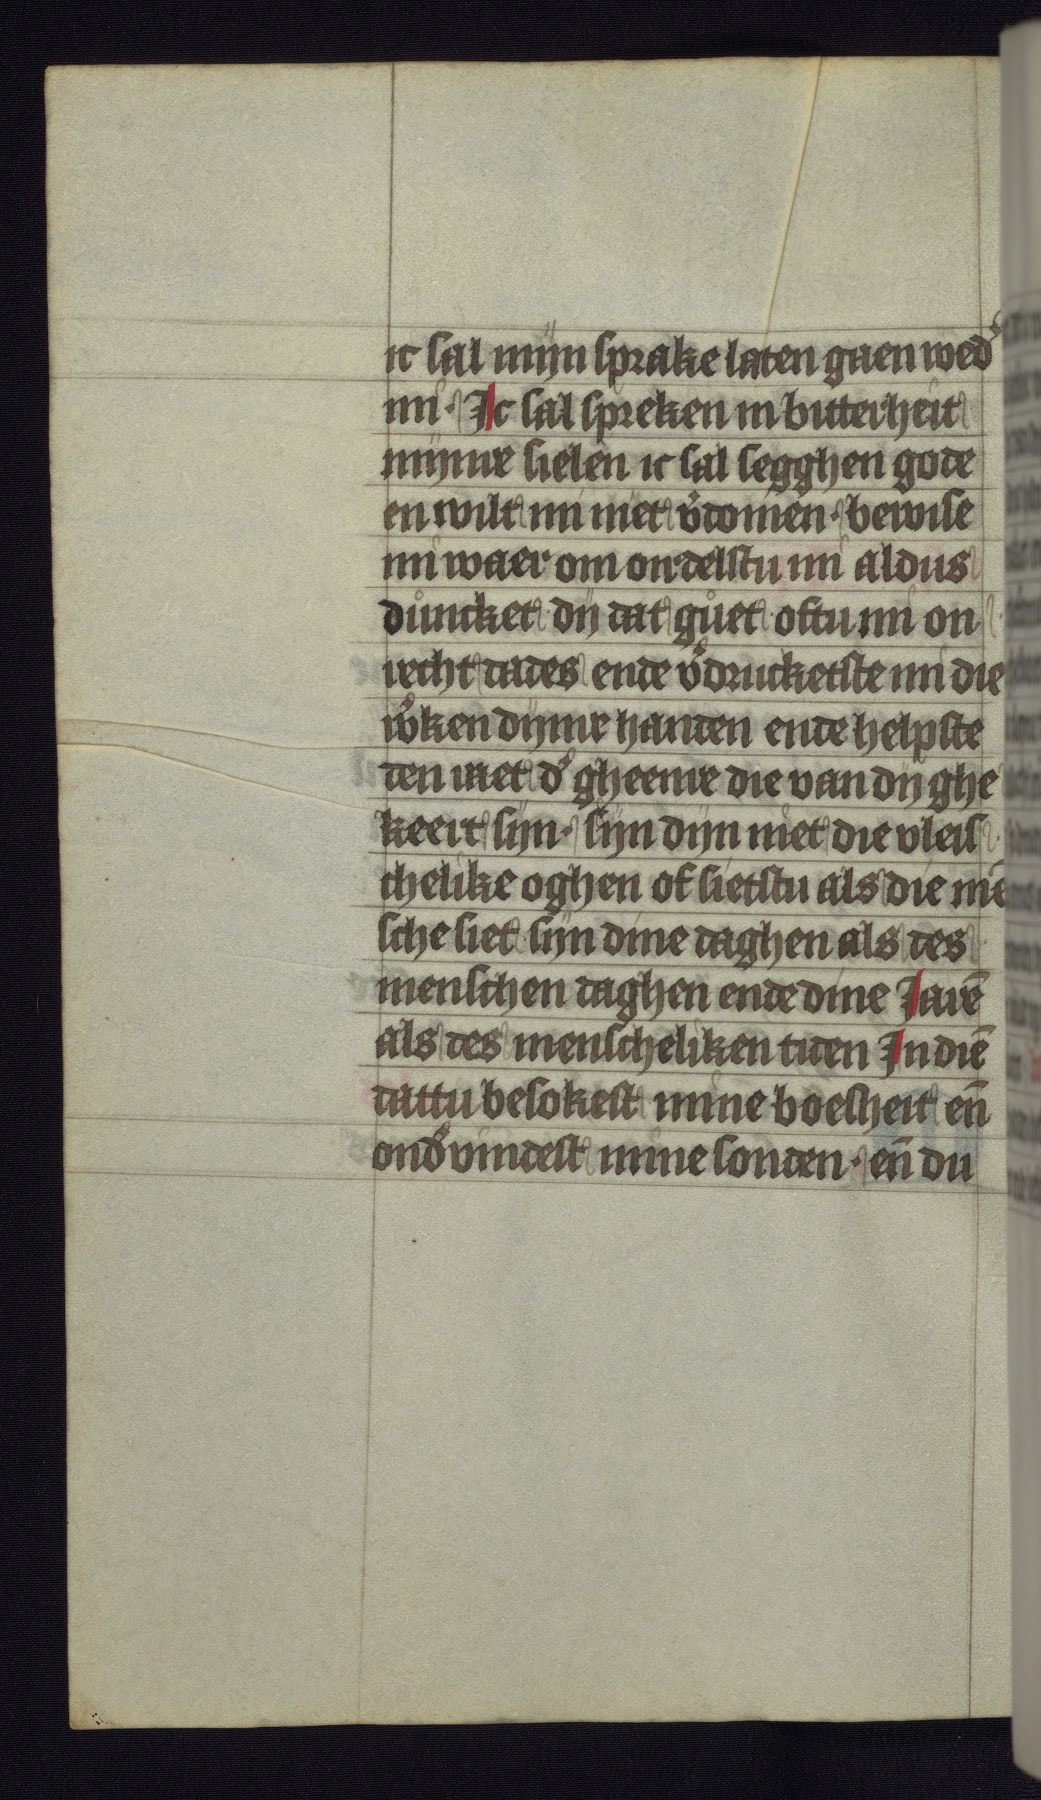 ic sal mijn sprake laten gaen wed'
mi · Ic sal spreken in bitterheit
mijnre sielen ic sal segghen gode
en wilt mi niet v'domen · bewise
mi waer om ordelstu mi aldus
důncket dij dat gůet oftu mi on
recht dades ende v'drucketste mi die
w'ken dijnre handen ende helpste
den raet d' gheenre die van dij ghe
keert sijn · sijn dijn niet die vleis
chelike oghen of sietstu als die mē
sche siet sijn dine daghen als des
menschen daghen ende dine Jarē
als des menscheliken tiden In diē
dattu besokest mine boesheit eñ
ond'vindest mine sonden · eñ du